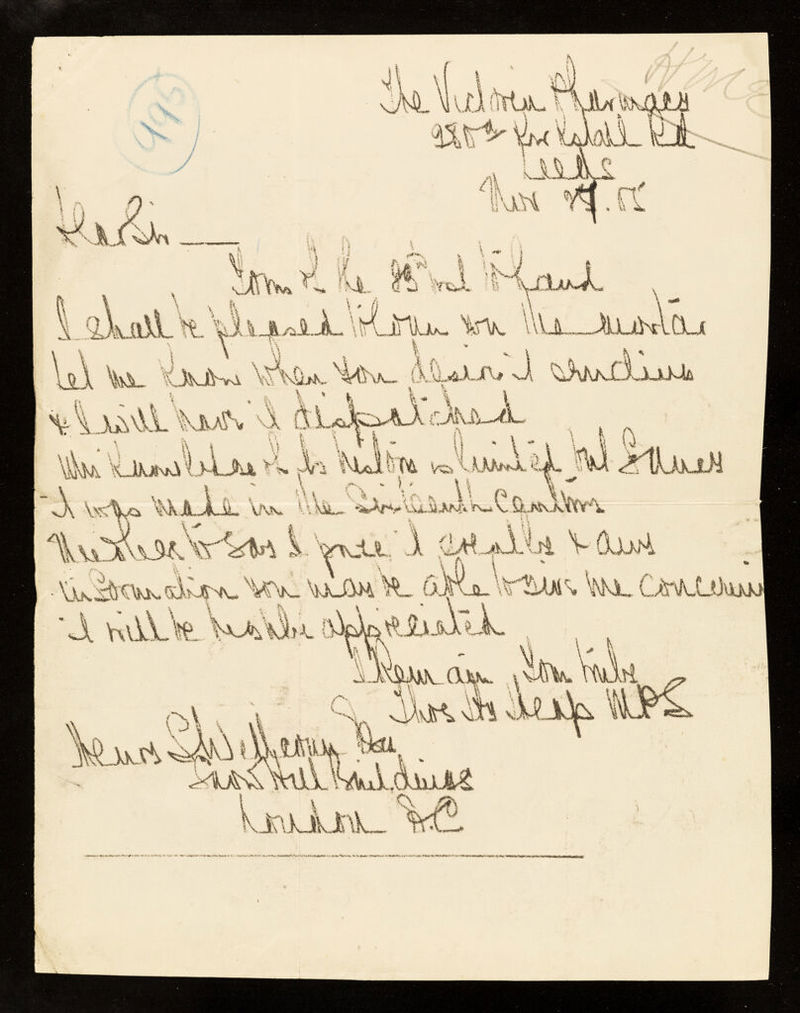 995
The Victoria Pharmacy
280a Kirkstall Rd
Leeds
Nov 27.05
Dear Sir
Yours of the 25th inst to hand
I shall be pleased to loan you the mortar
let me know when you desire it sending
& I will have it dispatched
My knowledge of its history is limited but I guess
it was made in the Sixteenth Century
Needless to say I prize it greatly & any
information you may be able to give me concerning
it will be highly appreciated
I Remain Yours truly
Thos Heap MPS
Henry S Wellcome Esq
Snow Hill Buildings
London E.C